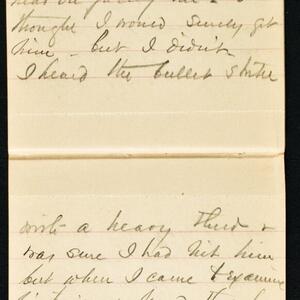 thought I would surely get
him - but I didn't
I heard the bullet strike
with a heavy thud &
was sure I had hit him
but when I came to examine